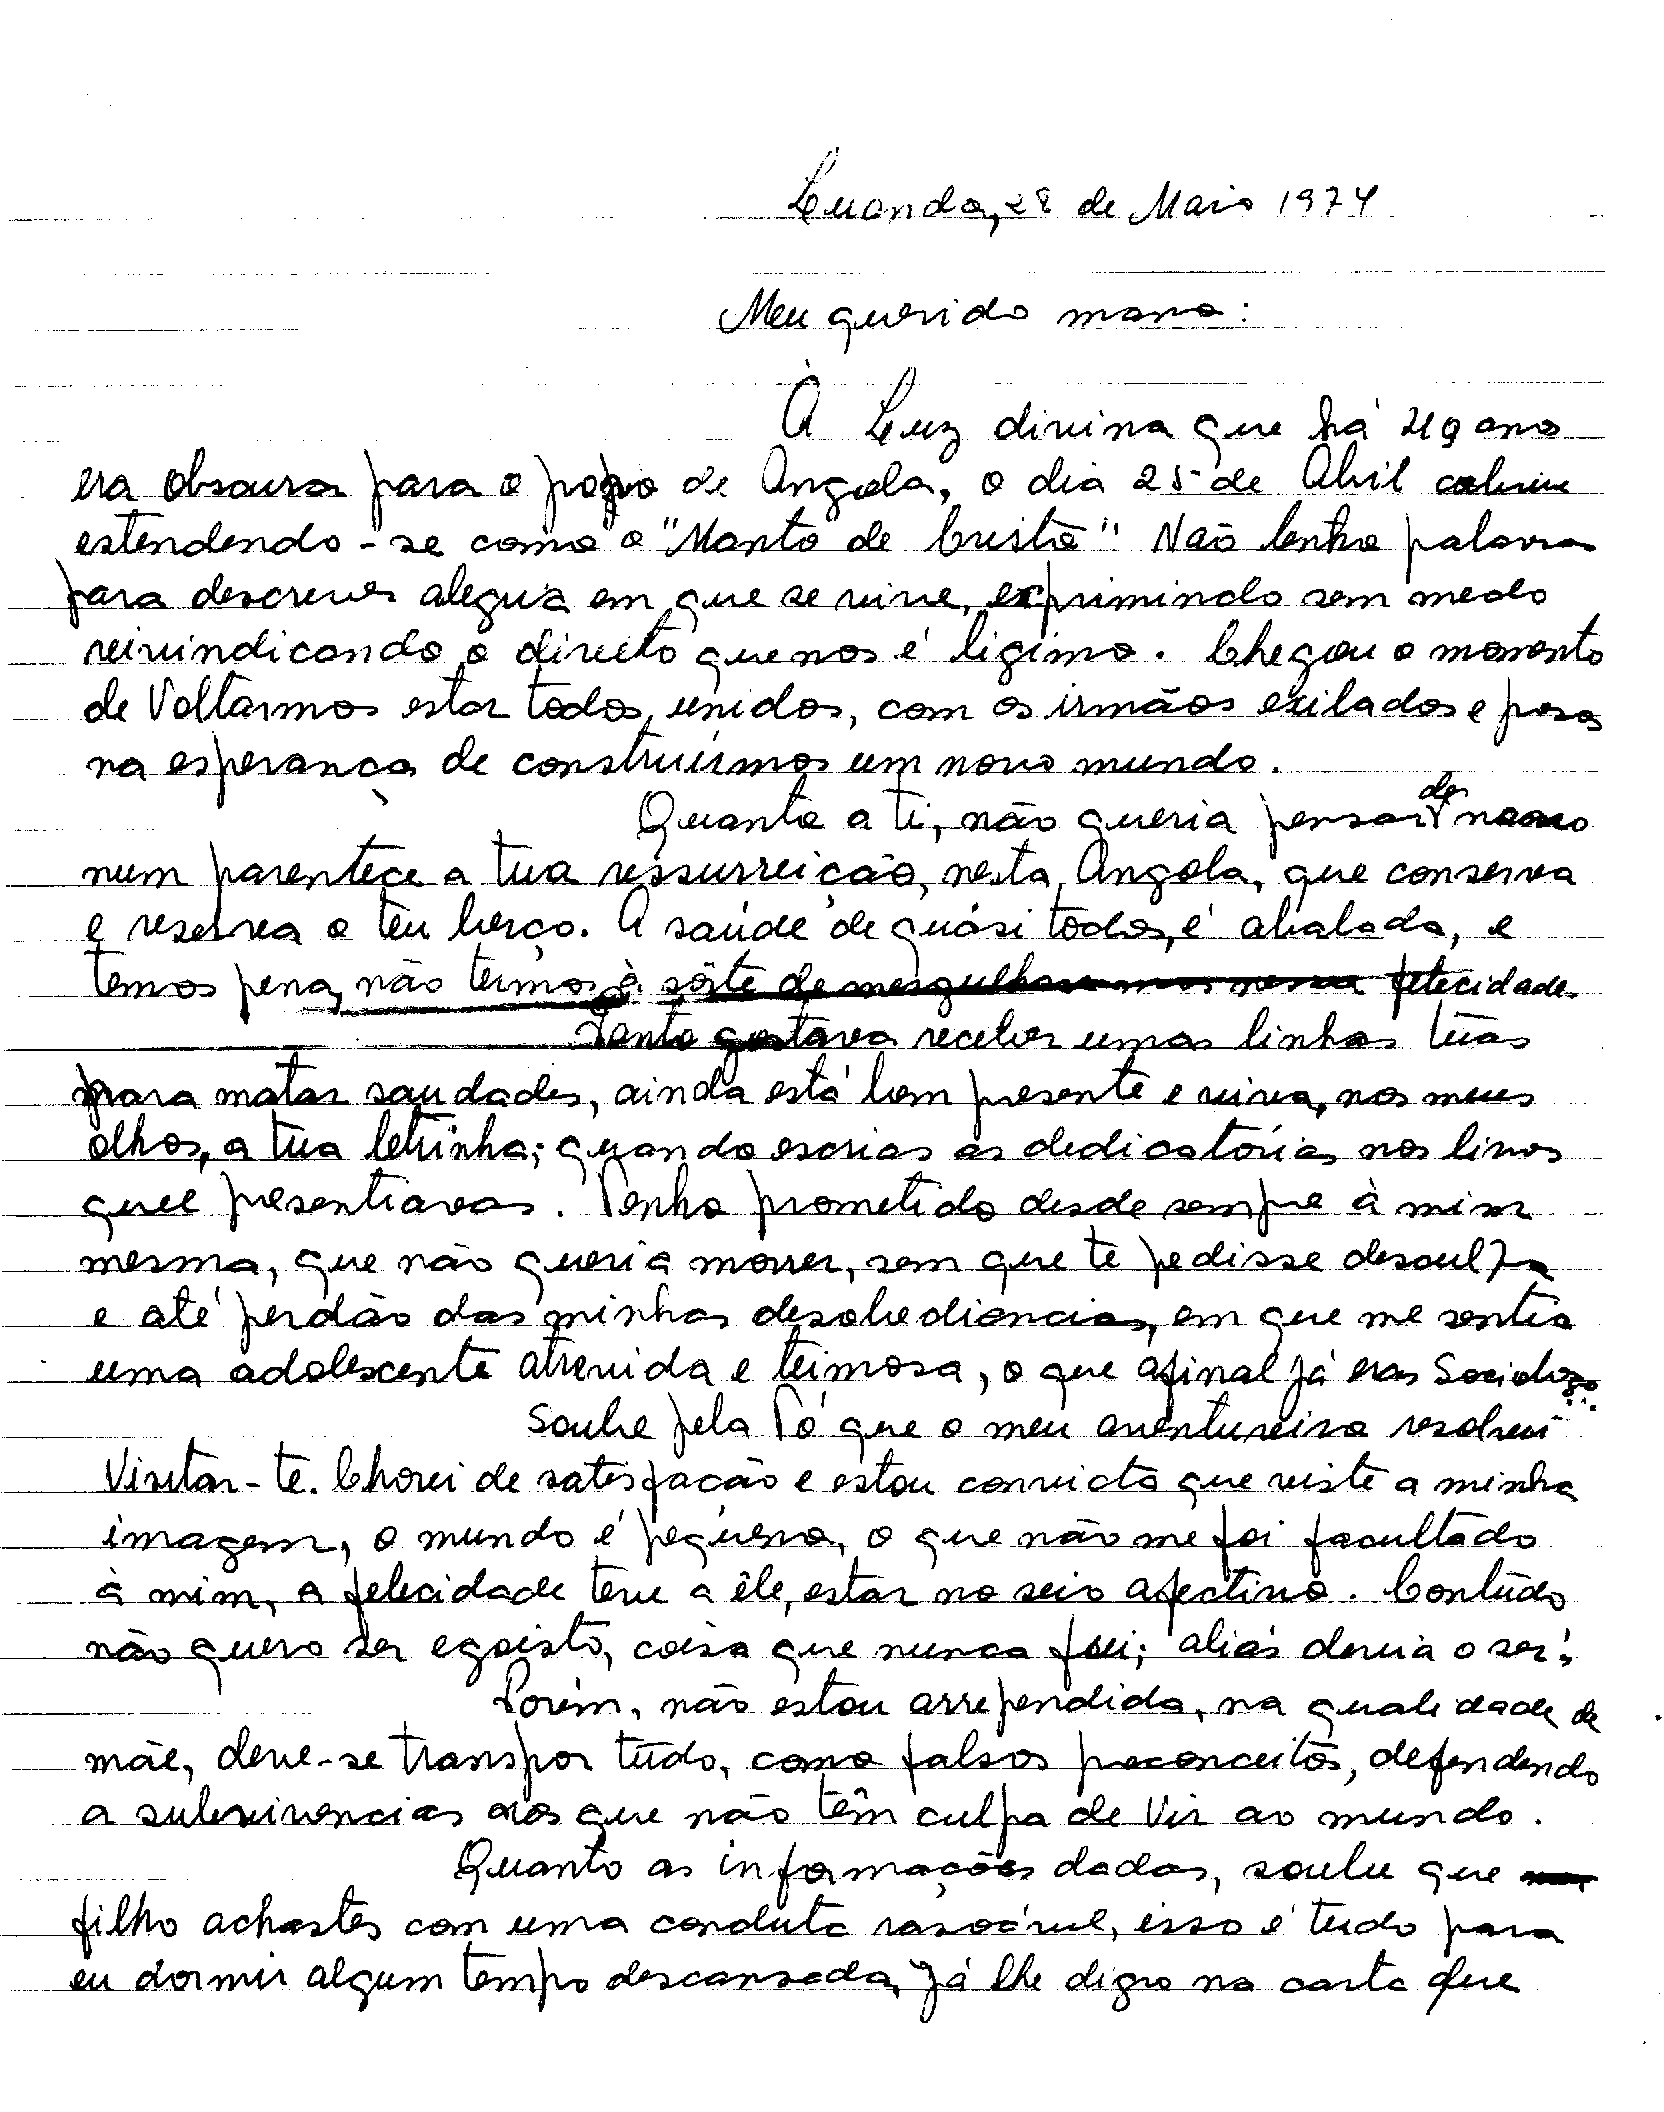 Luanda, 28 de Maio 1974
Meu querido mano:
A Luz divina que há ano
era obscura para o povo de Angola, o dia 25 de Abril cobriu
estendendo-se como o "Manto de Cristo". Não tenho palavras
para descrever alegria em que se vive, exprimindo sem medo
reivindicando o direito que nos é ligimo. Chegou o momento
de Voltarmos estar todos unidos, com os irmãos exilados e presos
na esperança de construirmos um novo mundo.
Quanto a ti, não queria pensar de novo
num parentece a tua ressurreição, nesta Angola, que conserva
e reserva o teu berço. A saúde de quási todos, é abalada, e
temos pena, não termos à sôrte de mergulhar-mos nessa felecidade.
Tanto gostava receber umas linhas tuas
para matar saudades, ainda está bem presente e viva, nos meus
olhos, a tua letrinha; quando escrias as dedicatórias nos livros
que presentiavas. Tenho prometido desde sempre à mim
mesma, que não queria morrer, sem que te pedisse desculpa
e até perdão das minhas desobediencias, em que me sentia
uma adolescente atrevida e teimosa, o que afinal já eras Sociologo...
Soube pela Tó que o meu aventureiro resolveu
Visitar-te. Chorei de satisfação e estou convicta que viste a minha
imagem, o mundo é pequeno, o que não me foi facultado
à mim, a felecidade teve a êle, estar no seio afectivo. Contudo
não quero ser egoista, coisa que nunca fui; aliás devia o ser!
Porém, não estou arrependida, na qualidade de
mãe, deve-se transpor tudo, como falsos preconceitos, defendendo
a subrivencias aos que não têm culpa de Vir ao mundo.
Quanto as informações dadas, soube que
filho achastes com uma conduta rasoável, isso é tudo para
eu dormir algum tempo descansada, Já lhe digo na carta que